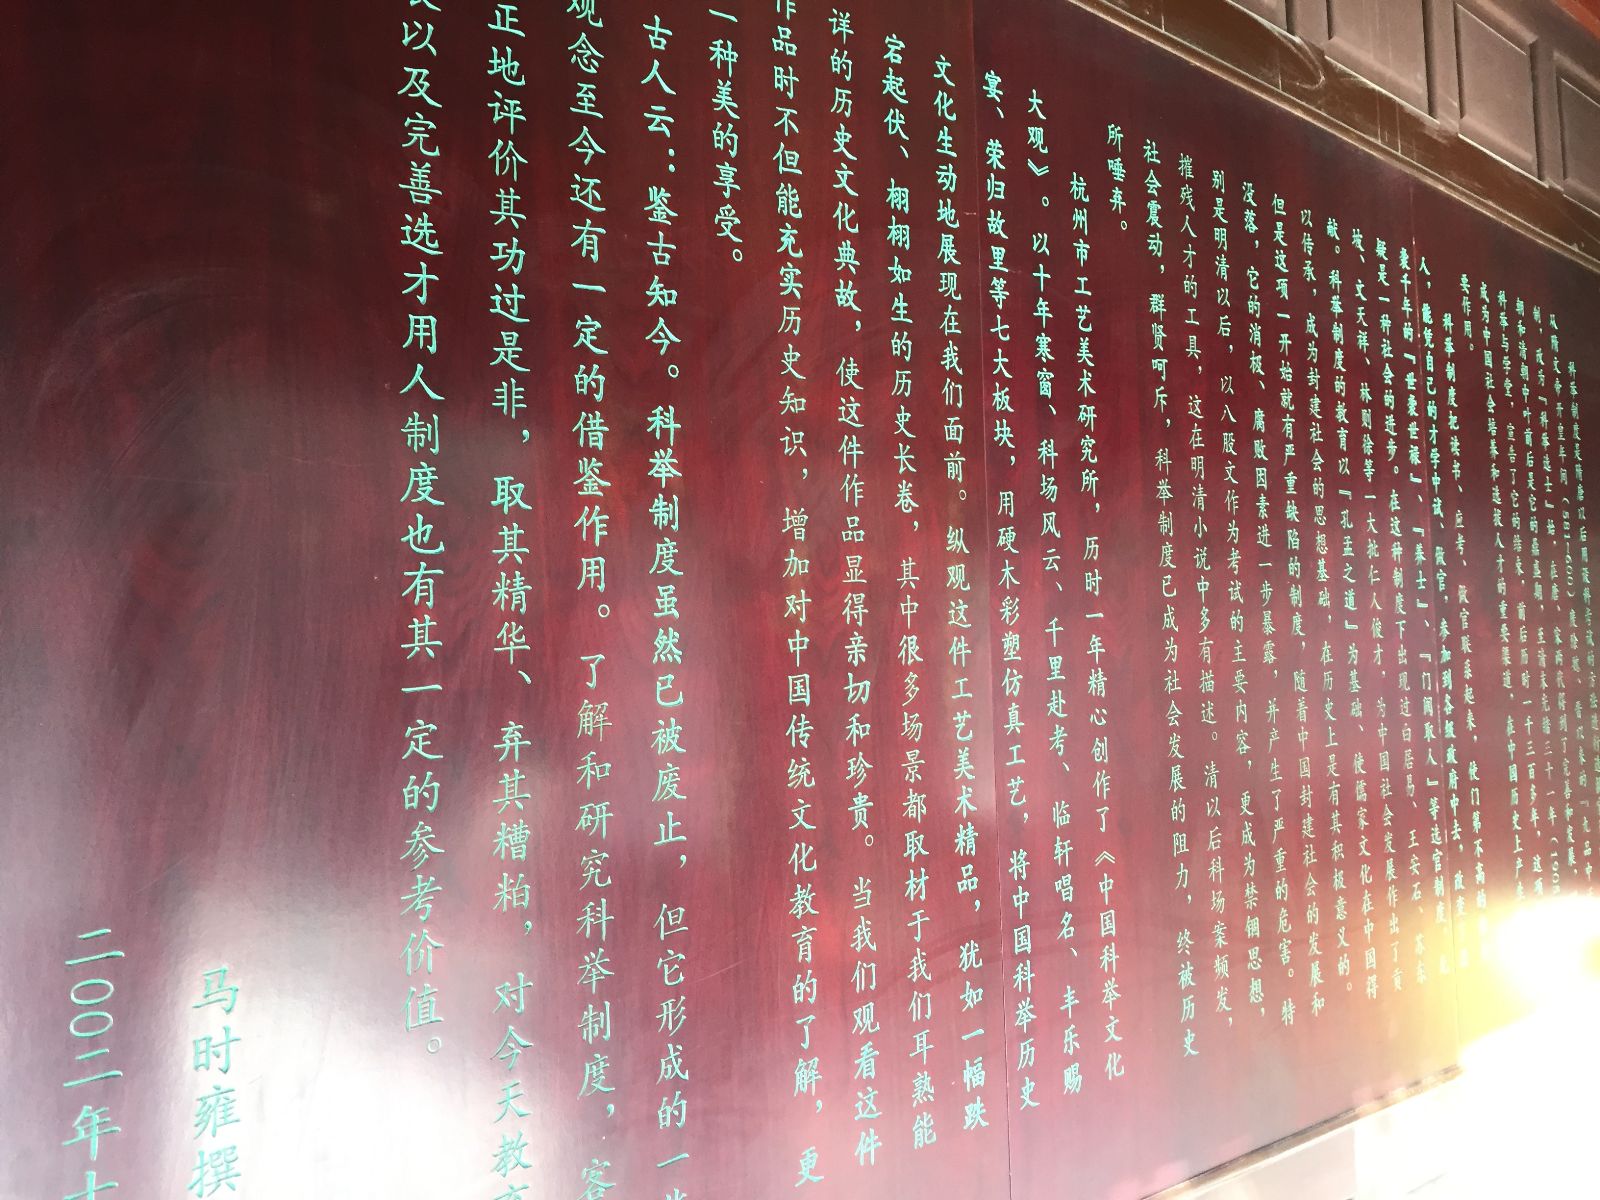 科举制度是隋唐以后用设科考试的方法
从隋文帝开皇年间(581—600)废除
制,改为『科举选士』始,在唐、宋两代得到了完善和发展,
朝和清朝中叶前后是它的鼎盛期,至清末光绪三十一年(1905
科举与学堂,宣告了它的结束,前后历时一千三百多年,这项
成为中国社会培养和选拔人才的重要渠道,在中国历史上产生
要作用。
科举制度把读书、应考、做官联系起来,使门第不高的
人,能凭自己的才学中试、做官,参加到各级政府中去,改变了
袭千年的『世袭世禄』、『养士』、『门阀取人』等选官制度,
疑是一种社会的进步。在这种制度下出现过白居易、王安石、苏东
坡、文天祥、林则徐等一大批仁人俊才,为中国社会发展作出了贡
献。科举制度的教育以『孔孟之道』为基础、使儒家文化在中国得
以传承,成为封建社会的思想基础,在历史上是有其积极意义的。
但是这项一开始就有严重缺陷的制度,随着中国封建社会的发展和
没落,它的消极、腐败因素进一步暴露,并产生了严重的危害。特
别是明清以后,以八股文作为考试的主要内容,更成为禁锢思想,
摧残人才的工具,这在明清小说中多有描述。清以后科场案频发,
社会震动,群贤呵斥,科举制度已成为社会发展的阻力,终被历史
所唾弃。
杭州市工艺美术研究所,历时一年精心创作了《中国科举文化
大观》。以十年寒窗、科场风云、千里赴考、临轩唱名、丰乐赐
宴、荣归故里等七大板块,用硬木彩塑仿真工艺,将中国科举历史
文化生动地展现在我们面前。纵观这件工艺美术精品,犹如一幅跌
宕起伏、栩栩如生的历史长卷,其中很多场景都取材于我们耳熟能
详的历史文化典故,使这件作品显得亲切和珍贵。当我们观看这件
作品时不但能充实历史知识,增加对中国传统文化教育的了解,更
一种美的享受。
古人云:鉴古知今。科举制度虽然已被废止,但它形成的一些
观念至今还有一定的借鉴作用。了解和研究科举制度,客
正地评价其功过是非,取其精华、弃其糟粕,对今天教育
以及完善选才用人制度也有其一定的参考价值。
马时雍撰
二〇〇二年十